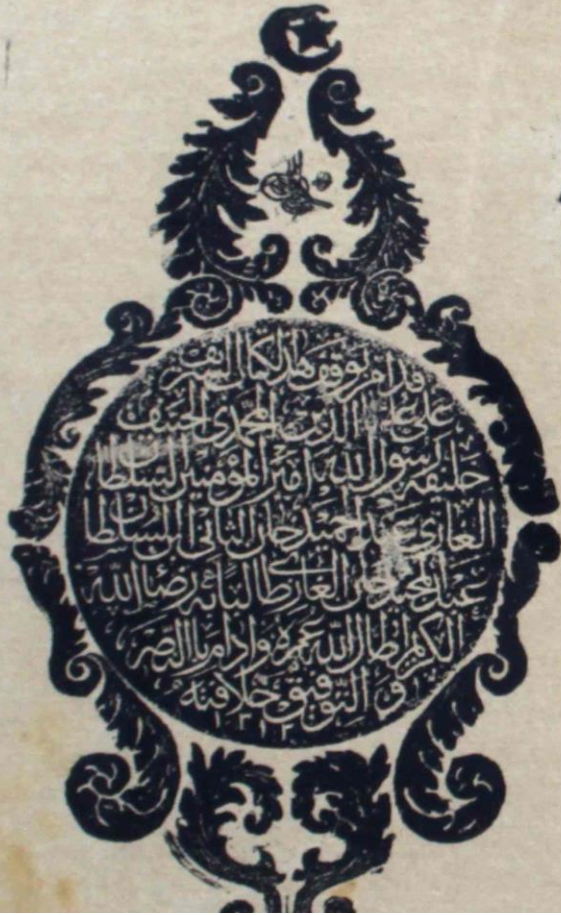 قد امر بوقف هذا الكتاب الشريف
على علماء الدين المحمدى الحنيف
خليفة رسول الله امير المؤمنين السلطان
الغازى عبد الحميد خان الثانى ابن السلطان
عبد المجيد خان الغازى طالبا به رضاء الله
الكريم اطال الله عمره وادام بالنصر
و التوفيق خلافته
١٣١٢